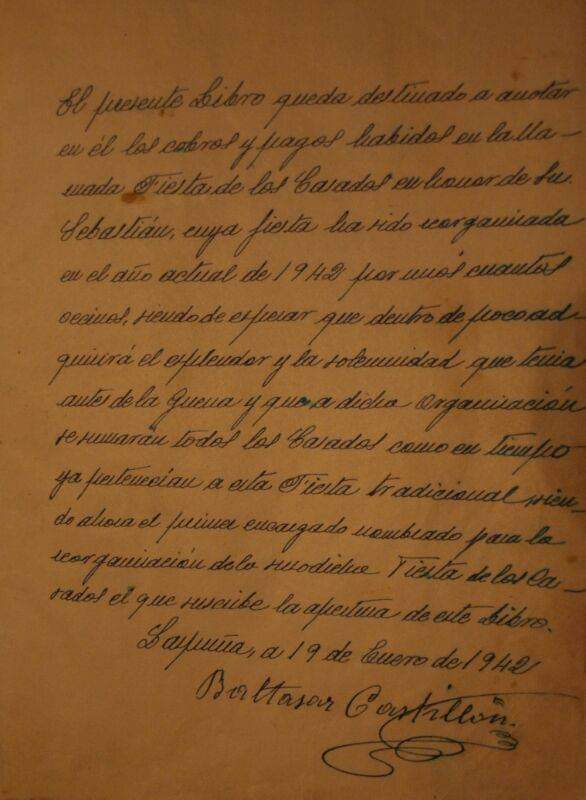 El presente Libro queda destinado a anotar
en él los cobros y pagos habidos en la lla-
mada Fiesta de los Casados en honor de Sn.
Sebastián, cuya fiesta ha sido reorganizada
en el año actual de 1942 por unos cuantos
vecinos, siendo de esperar que dentro de poco ad-
quirirá el esplendor y la solemnidad que tenia
antes de la Guerra y que a dicha Organización
se sumarán todos los Casados como en tiempo
ya pertenecían a esta Fiesta tradicional sien-
do ahora el primer encargado nombrado para la
reorganisación de la susodicha Fiesta de los Ca-
sados el que suscribe la apertura de este Libro.
Laspuña, a 19 de Enero de 1942
Baltasar Castillón